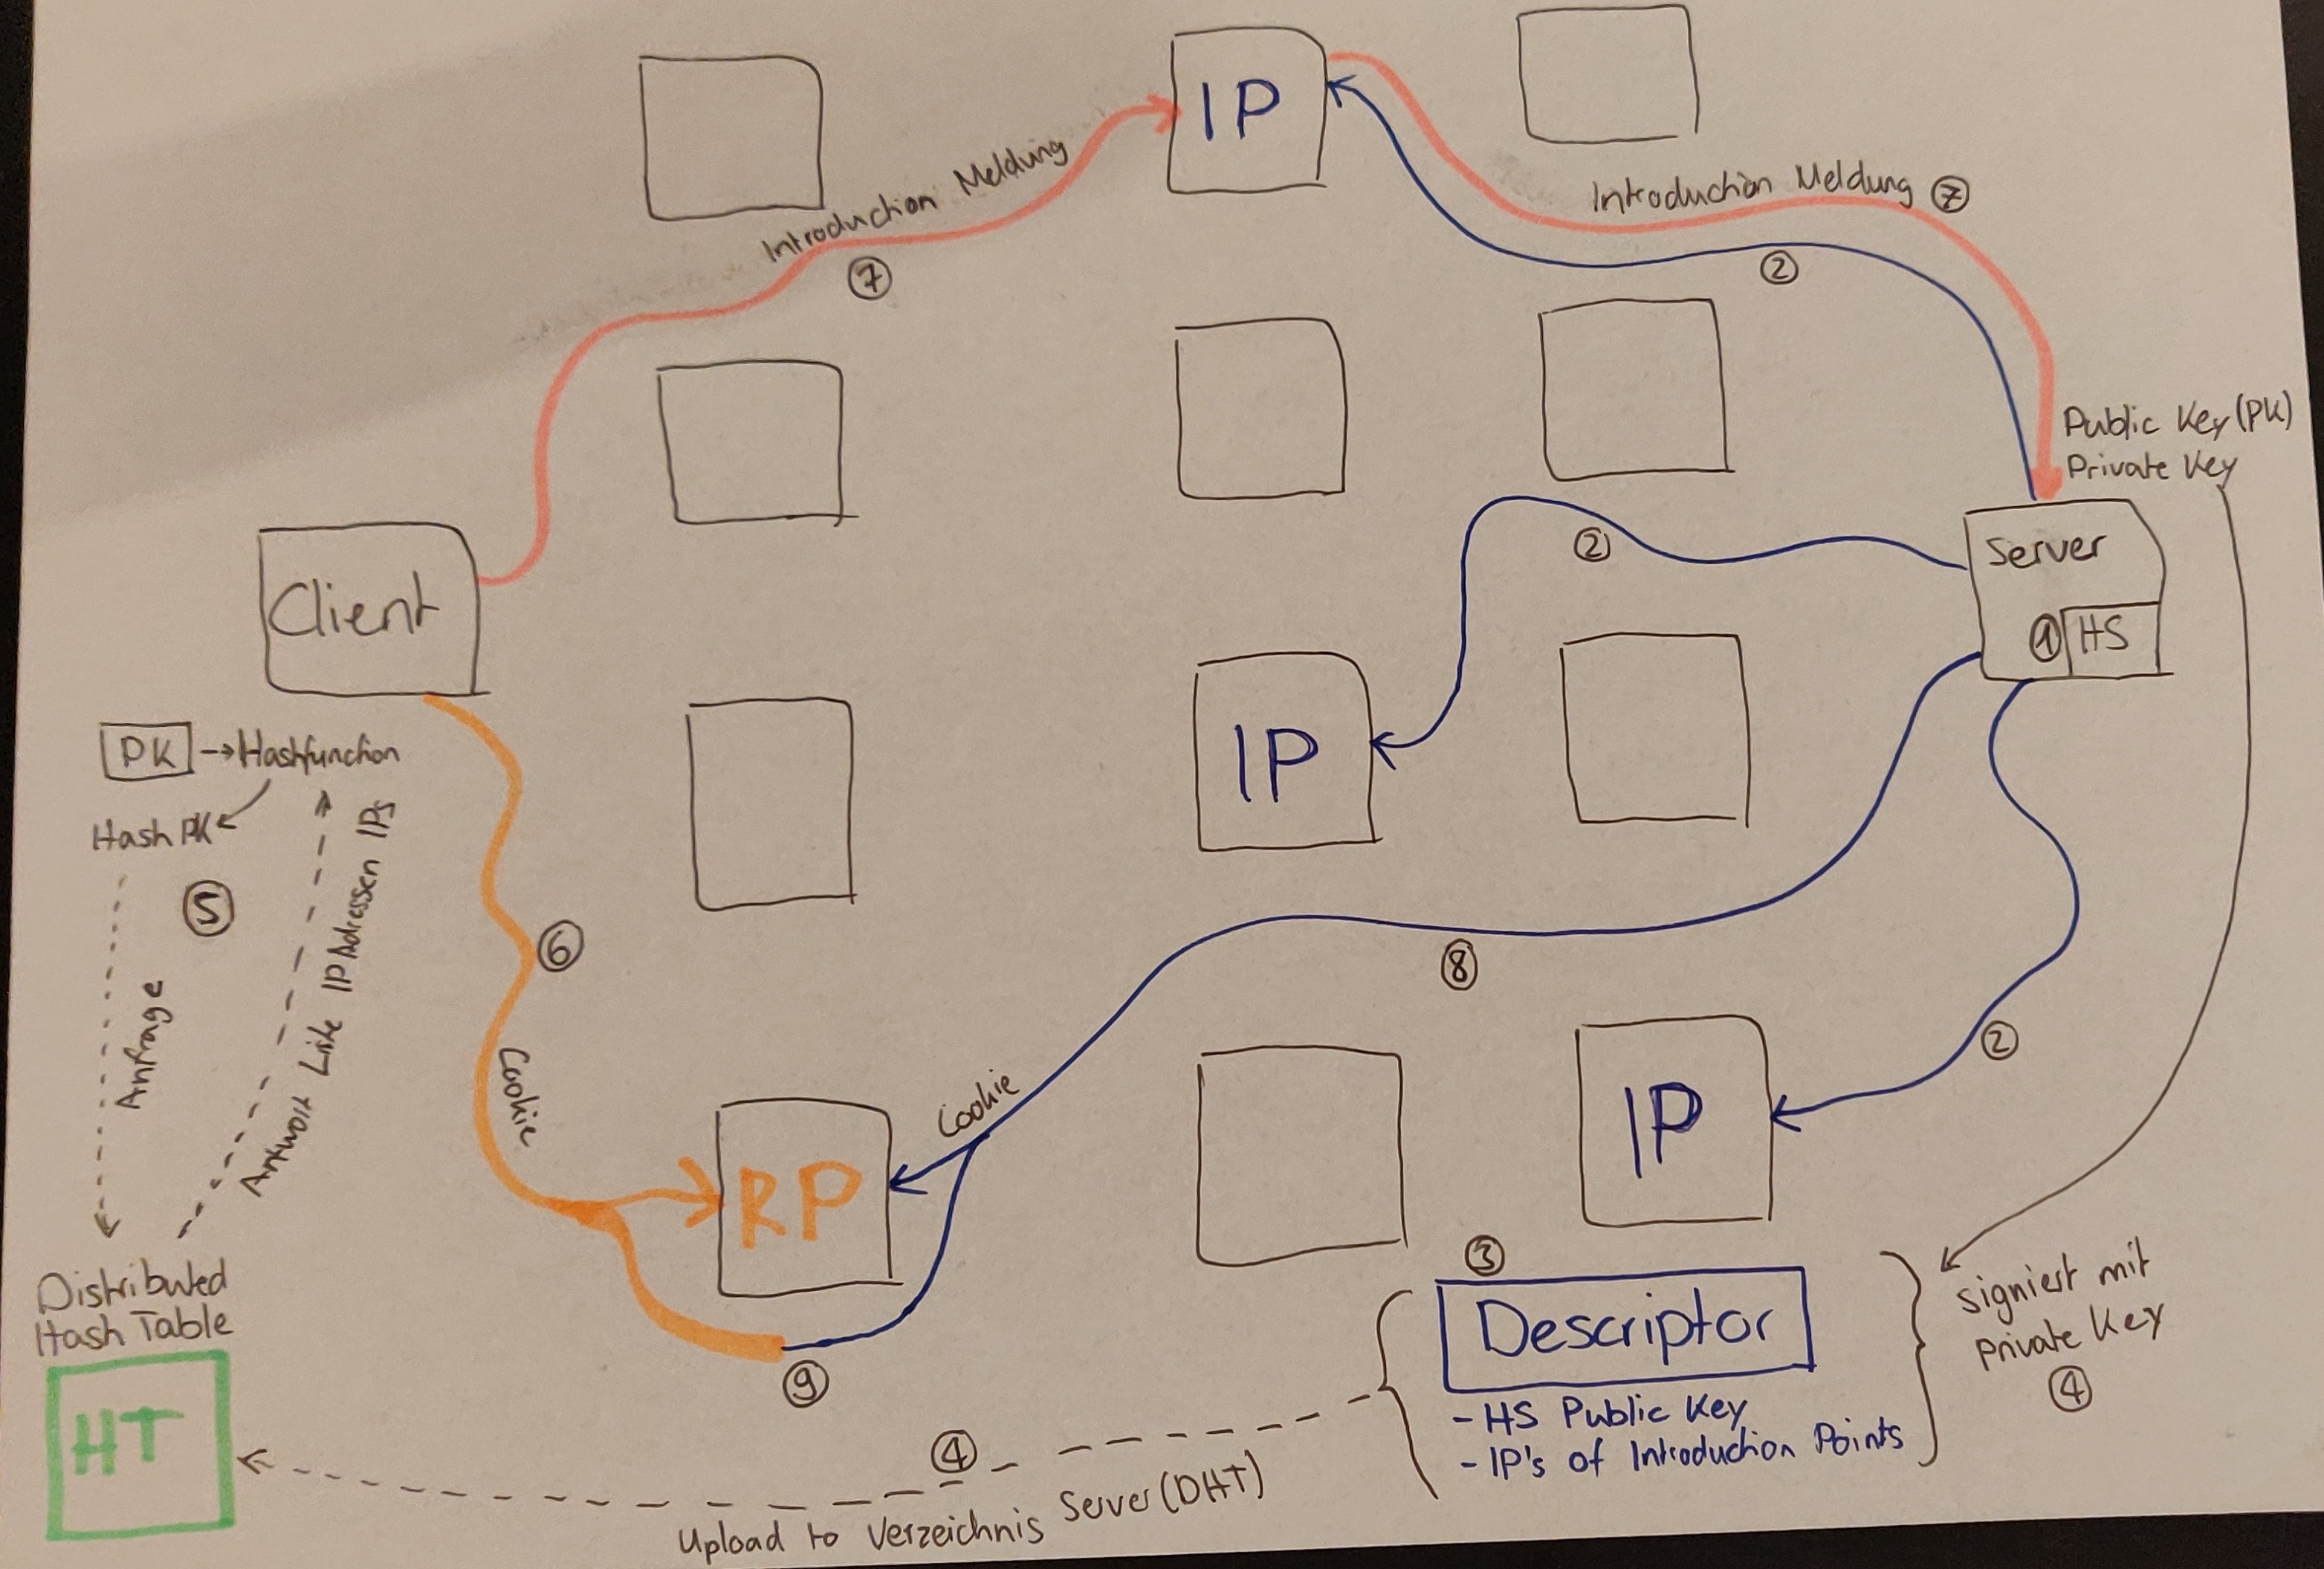 IP
Introduction Meldung
7
Introduction Meldung 7
2
Public Key (PK)
Private Key
Client
2
Server
1 HS
IP
PK → Hashfunction
Hash PK
5
Anfrage
Antwort Liste IP Adressen IPs
6
Cookie
8
Cookie
2
RP
IP
9
Distributed
Hash Table
HT
3
Descriptor
- HS Public Key
- IP's of Introduction Points
signiert mit
Private Key
4
4
Upload to Verzeichnis Server (DHT)